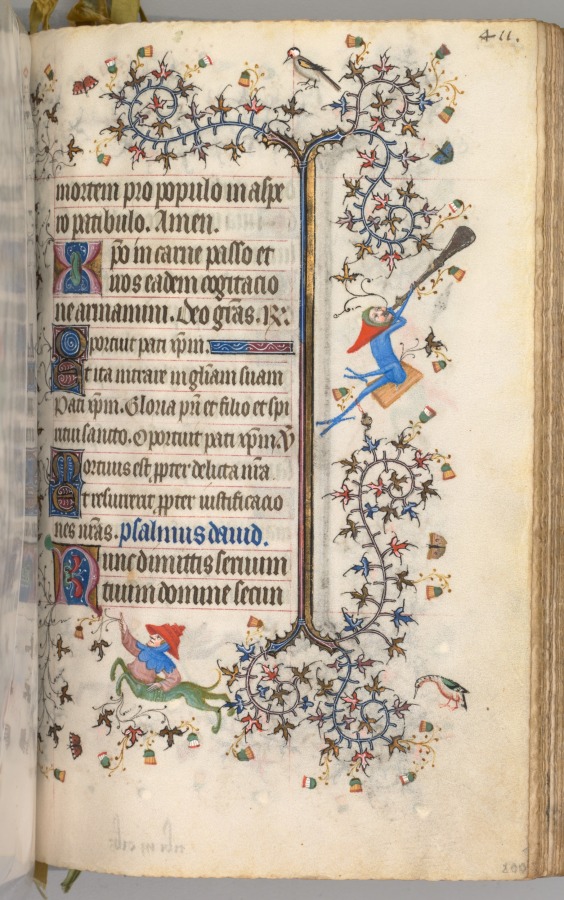 411.
mortem pro populo in aspe
ro patibulo. Amen.
Xpo in carne passo et
uos eadem cogitacio
ne armamini. Deo gras. R.
Oportuit pati xpm.
Et ita intrare in gliam suam
Pati xpm. Gloria pri et filio et spi
ritui sancto. Oportuit pati xpm. V
Mortuus est ppter delicta nra.
Et resurrexit ppter iustificacio
nes nras. psalmus dauid.
Nunc dimittis seruum
tuum domine secun